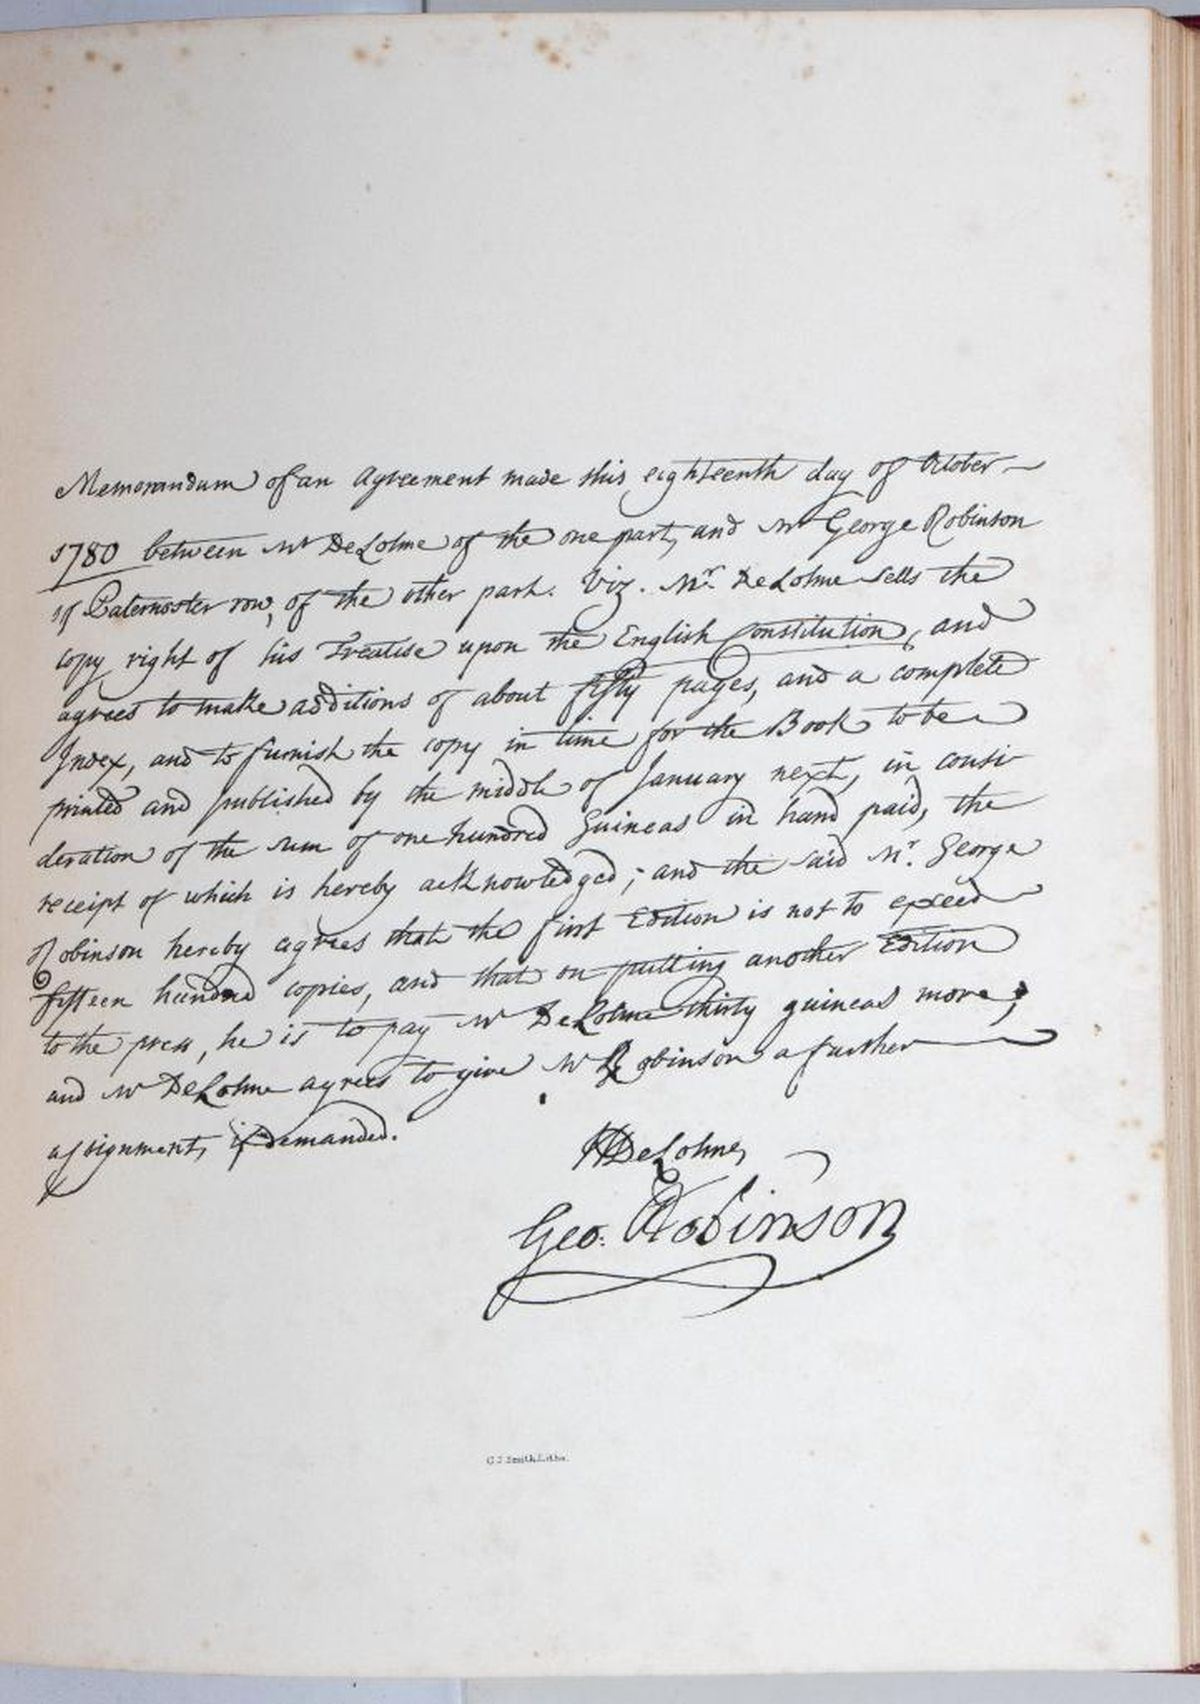 Memorandum of an Agreement made this eighteenth day of October
1780 between Mr DeLolme of the one part, and Mr George Robinson
of Paternoster row, of the other part. Viz. Mr. DeLolme sells the
copy right of his Treatise upon the English Constitution, and
agrees to make additions of about fifty pages, and a complete
Index, and to furnish the copy in time for the Book to be
printed and published by the middle of January next, in consi
deration of the sum of one hundred Guineas in hand paid, the
receipt of which is hereby acknowledged; and the said Mr. George
Robinson hereby agrees that the first Edition is not to exceed
fifteen hundred copies, and that on putting another Edition
to the press, he is to pay Mr DeLolme thirty guineas more;
and Mr DeLolme agrees to give Mr Robinson a further
assignment, if demanded.
DeLolme,
Geo. Robinson
C. J. Smith, Litho.